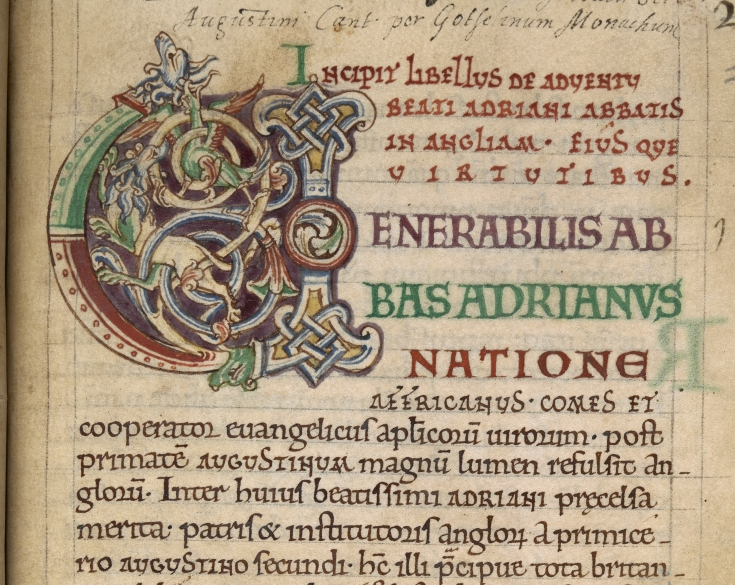 Augustini Cant. per Gotselinum Monachum
2
Incipit libellus de adventu
beati adriani abbatis
in angliam. eius que
uirtutibus.
ENERABILIS AB
BAS ADRIANVS
NATIONE
affricanus. comes et
cooperator euangelicus aplicorū uirorum. post
primatē augustinum magnū lumen refulsit an-
glorū. Inter huius beatissimi adriani pręcelsa
merita. patris & institutoris anglorꝝ a primice-
rio augustino secundi. hc̄ illi p̄cipue tota britan-